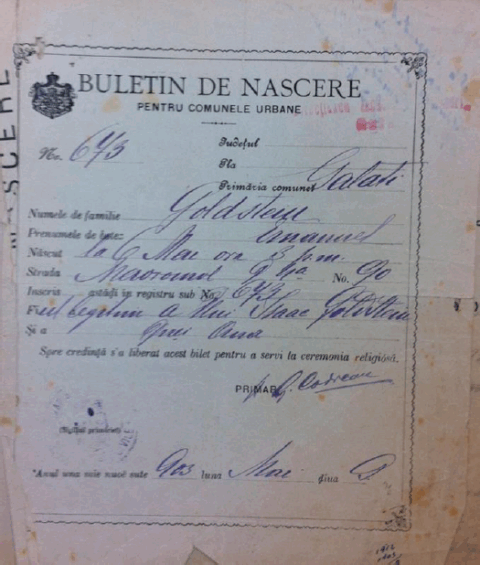 BULETIN DE NASCERE
PENTRU COMUNELE URBANE
No. 673
Județul
Pla
Primăria comunei Galati
Numele de familie Goldstein
Prenumele de botez Emanuel
Născut la 6 Mai ora 3 p.m.
Strada No. 90
Inscris astăḑi in registru sub No. 673
Fiul legitim a lui Isaac Goldstein
Și a Ana
Spre credință s'a liberat acest bilet pentru a servi la ceremonia religiósă.
PRIMAR
(Sigiliul primăriei)
Anul una mie nuoă sute 903 luna Mai ḑiua 9
NASCERE